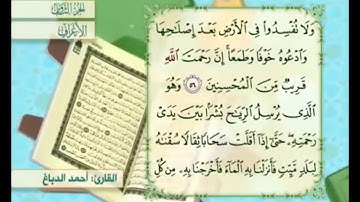 الجزء الثامن
الأعراف
وَلَا تُفْسِدُوا۟ فِى ٱلْأَرْضِ بَعْدَ إِصْلَـٰحِهَا
وَٱدْعُوهُ خَوْفًا وَطَمَعًا ۚ إِنَّ رَحْمَتَ ٱللَّهِ
قَرِيبٌ مِّنَ ٱلْمُحْسِنِينَ ٥٦ وَهُوَ
ٱلَّذِى يُرْسِلُ ٱلرِّيَـٰحَ بُشْرًۢا بَيْنَ يَدَىْ
رَحْمَتِهِۦ ۖ حَتَّىٰٓ إِذَآ أَقَلَّتْ سَحَابًا ثِقَالًا سُقْنَـٰهُ
لِبَلَدٍ مَّيِّتٍ فَأَنزَلْنَا بِهِ ٱلْمَآءَ فَأَخْرَجْنَا بِهِۦ مِن كُلِّ
القارئ: أحمد الدباغ